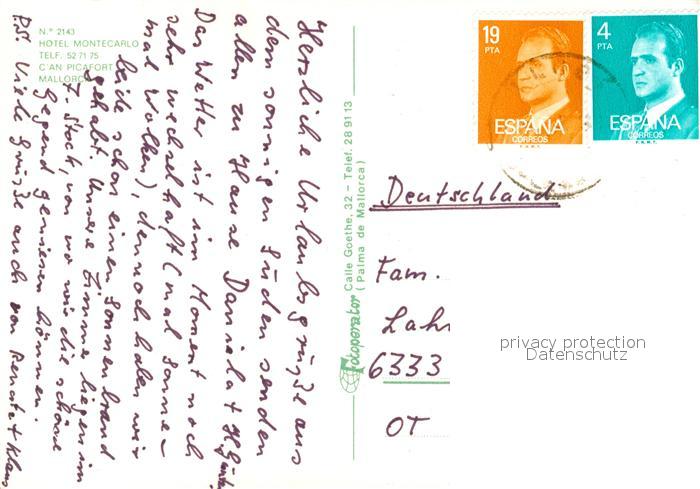 N.° 2143
HOTEL MONTECARLO
TELF. 52 71 75
C'AN PICAFORT
MALLORCA
Herzliche Urlaubsgrüße aus
dem sonnigen Süden senden
allen zu Hause Daniela + H. Günter
Das Wetter ist im Moment noch
sehr wechselhaft (mal Sonne –
mal Wolken), dennoch haben wir
beide schon einen Sonnenbrand
gehabt. Unsere Zimmer liegen im
7. Stock, von wo wir die schöne
Gegend geniessen können.
P.S. Viele Grüße auch von Renate + Klaus
Fotoperator Calle Goethe, 32 – Telef. 28 91 13
(Palma de Mallorca)
19
PTA
ESPAÑA
CORREOS
F.N.M.T.
4
PTA
ESPAÑA
CORREOS
F.N.M.T.
Deutschland
Fam.
Lah
6333
OT
privacy protection
Datenschutz